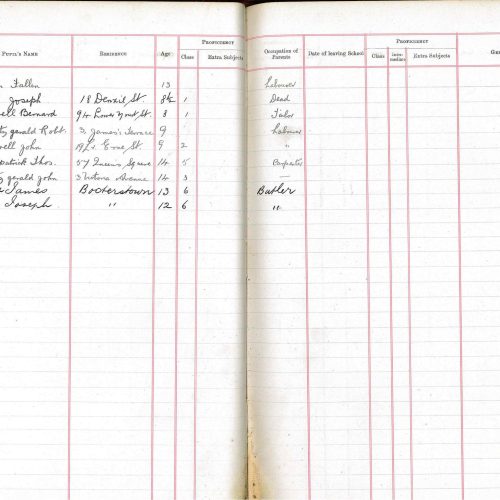 Proficiency Proficiency
Pupil's Name Residence Age Class Extra Subjects Occupation of Parents Date of leaving School Class Inter-mediate Extra Subjects
Fallon 13 Labourer
Joseph 18 Denzil St. 8½ 1 Dead
ell Bernard 94 Lower Mount St. 8 1 Tailor
gerald Robt. 3 James's Terrace 9 Labourer
ell John 19 Lr Erne St. 9 2 "
patrick Thos. 57 Queens Square 14 5 Carpenter
gerald John 3 Victoria Avenue 14 3 —
James Booterstown 13 6 Butler
Joseph " 12 6 "